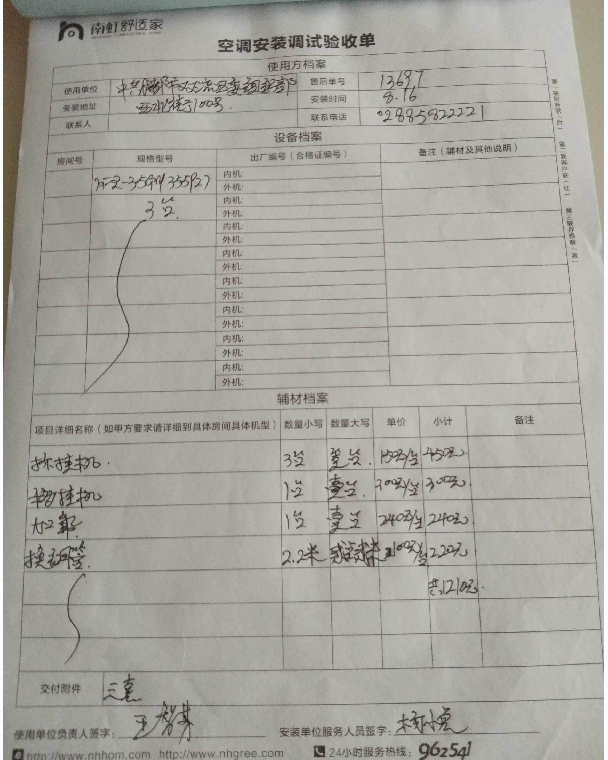 南虹舒适家
空调安装调试验收单
使用方档案
使用单位 售后单号 13697
安装地址 100号 安装时间 8.16
联系人 联系电话 02885822221
设备档案
房间号 规格型号 出厂编号（合格证编号） 备注（辅材及其他说明）
内机:
外机:
3台 内机:
外机:
内机:
外机:
内机:
外机:
内机:
外机:
内机:
外机:
内机:
外机:
内机:
外机:
辅材档案
项目详细名称（如甲方要求请详细到具体房间具体机型） 数量小写 数量大写 单价 小计 备注
拆挂机 3台 叁台 150元/台 450元
移挂机 1台 壹台 300元/台 300元
加氟 1台 壹台 240元/台 240元
换铜管 2.2米 220元
共1210元
交付附件
使用单位负责人签字: 安装单位服务人员签字:
http://www.nhhom.com http://www.nhgree.com 24小时服务热线: 962541